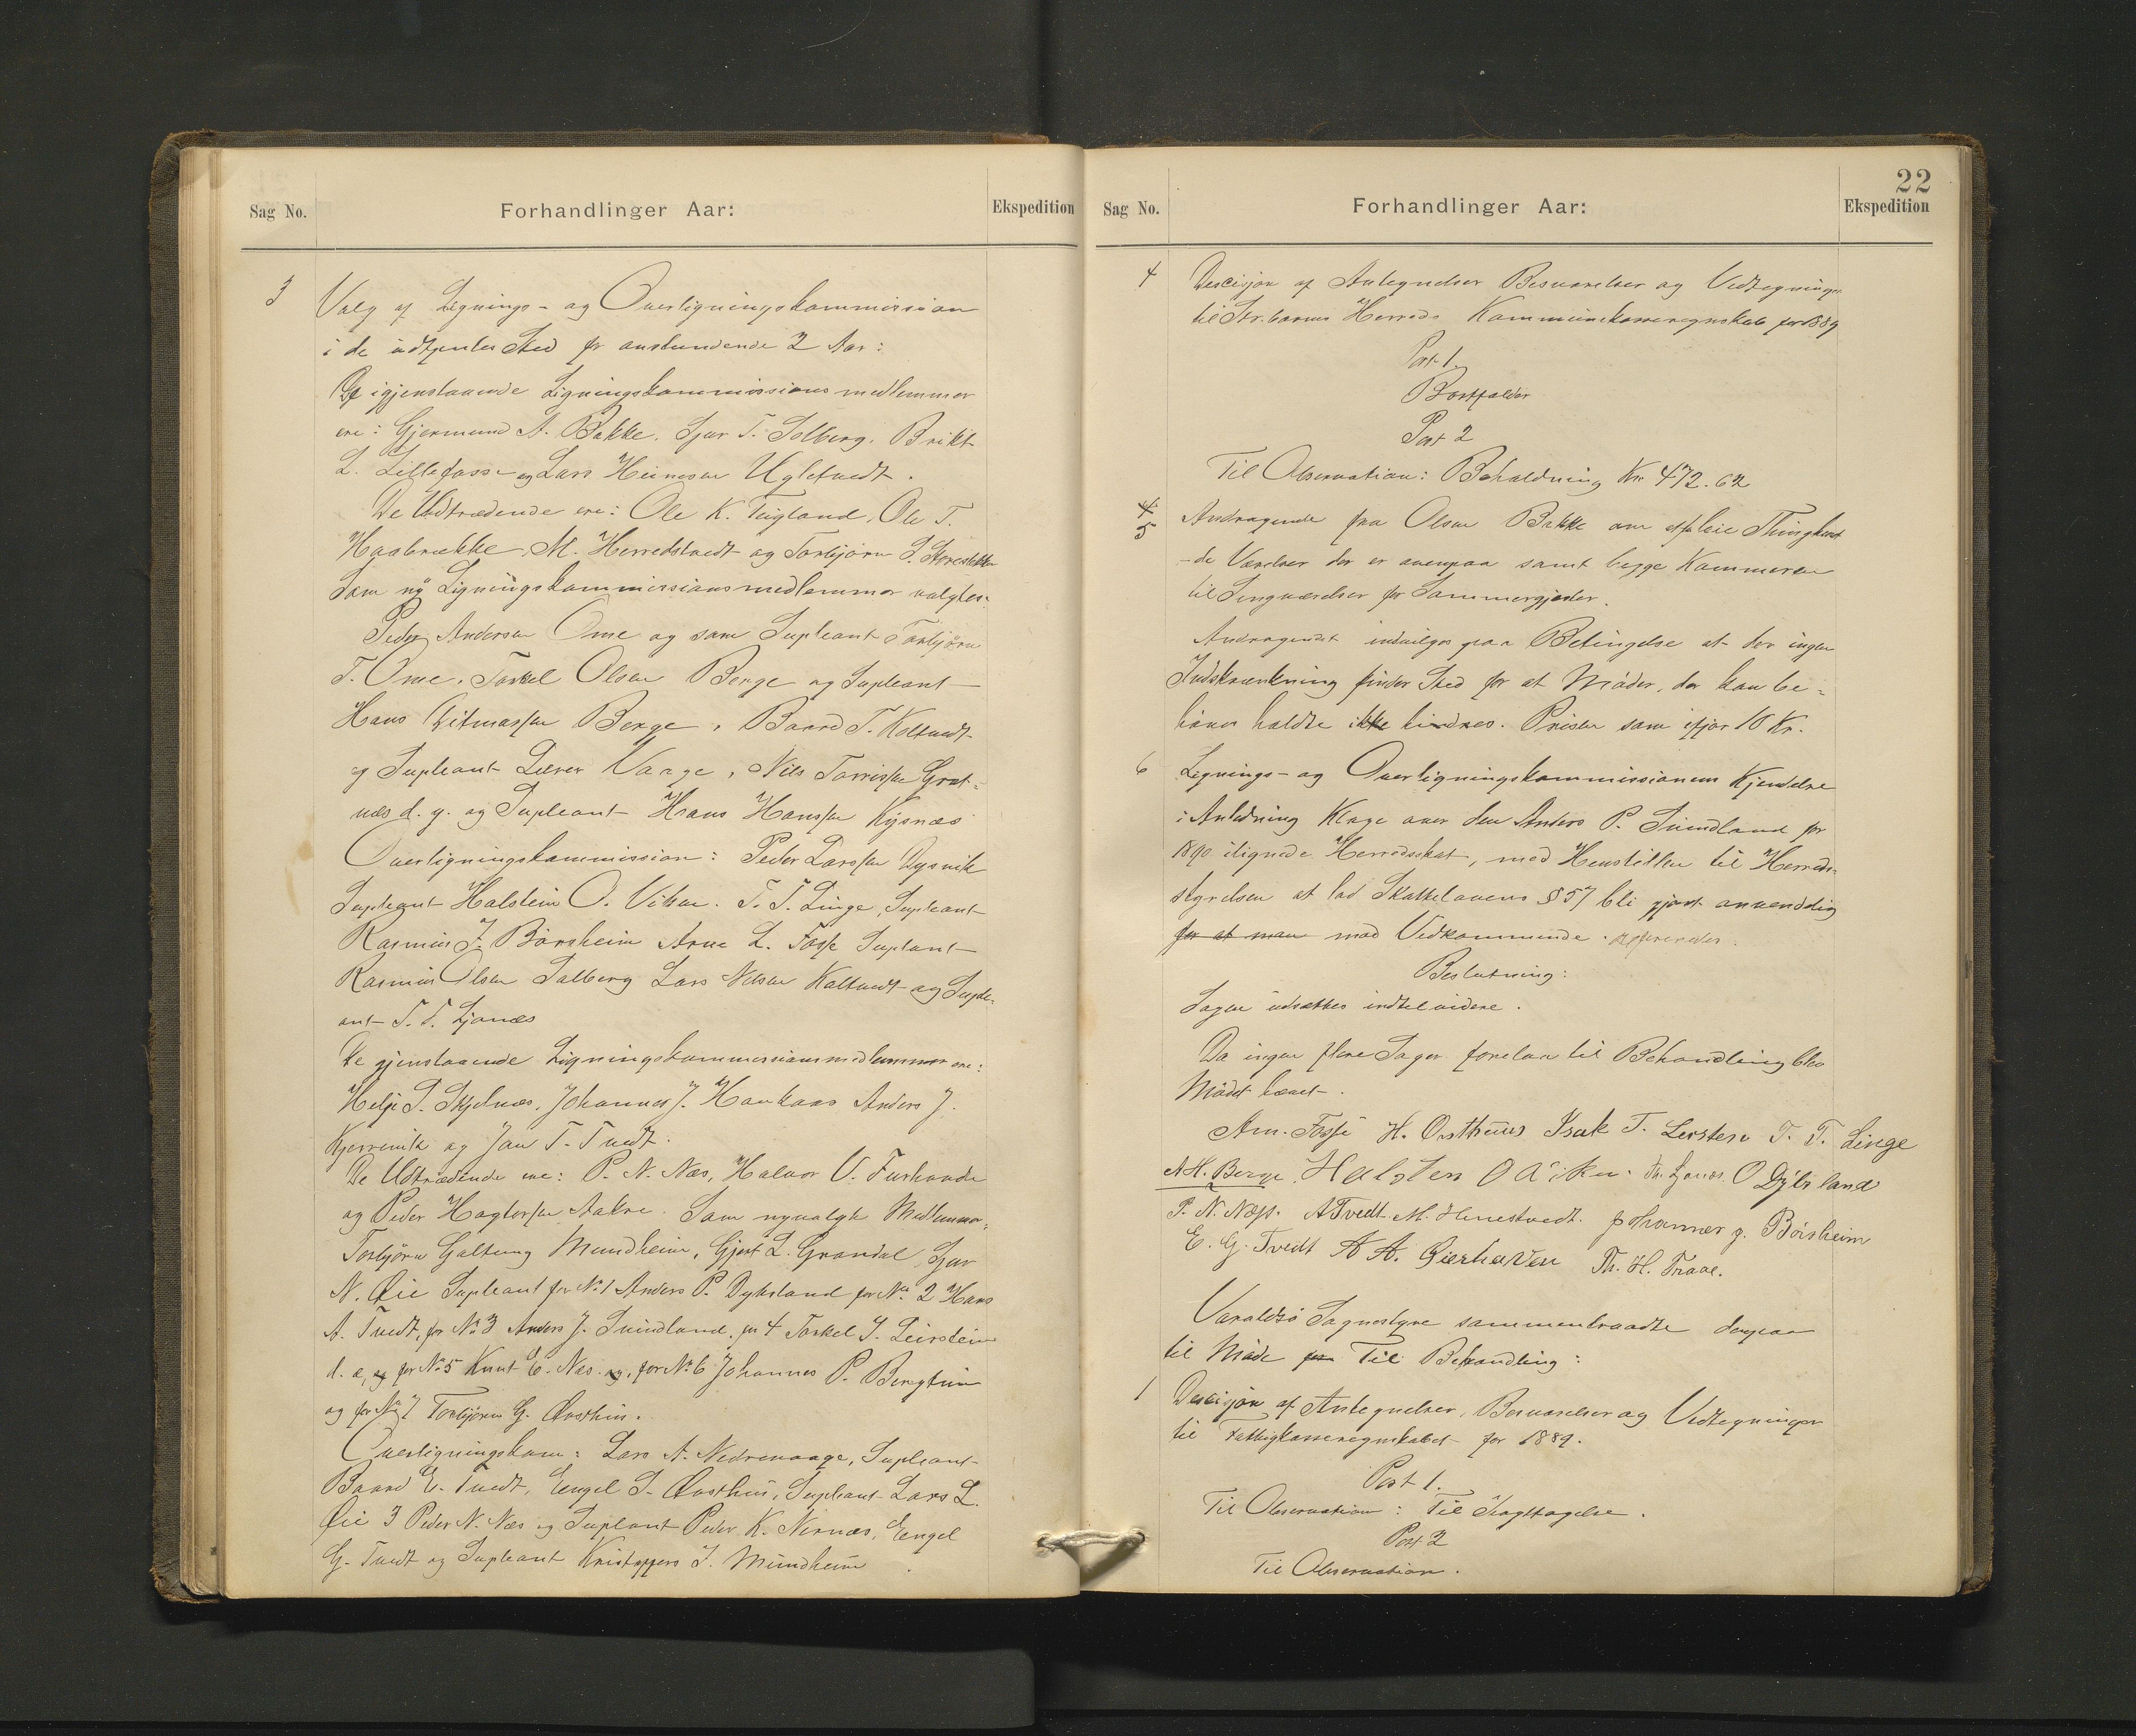 Sag No.
Forhandlinger Aar:
Ekspedition
3
Valg af Lignings- og Overligningskommission
i de udtrædendes Sted for anstundende 2 Aar:
De igjenstaaende Ligningskommissionsmedlemmer
ere: Gjermund A. Bakke. Sjur T. Solberg. Brikt
L. Lillefosse og Lars Heinesen Ugletvedt.
De Udtrædende ere: Ole K. Teigland, Ole T.
Haabrække, M. Herredstvedt og Torbjørn S.
Som ny Ligningskommissionsmedlemmer valgtes:
Peder Andersen Ome og som Supleant Torbjørn
T. Ome. Torkel Olsen Berge og Supleant
Hans Berge, Baard T. Koltvedt
og Supleant Lærer Vaage, Nils Torrissen Grot-
næs d. y. og Supleant Hans Hanssen Kysnæs
Overligningskommission: Peder Larssen Dysvik
Supleant Halstein O. T. T. Linge, Supleant
Rasmus J. Børsheim Arne L. Fosse Suplant
Rasmus Olsen Solberg Lars Nilsen Koltvedt og Suple-
ant T. T. Ljonæs
De gjenstaaende Ligningskommissionsmedlemmer ere:
Helje S. Skjelnæs, Johannes J. Haukaas Anders J.
Kjerrevik og Jan T. Tvedt.
De Udtrædende ere: P. N. Næs, Halvor V. Furhovde
og Peder Hagtorsen Aakre. Som nyvalgte Medlemmer,
Torbjørn Galtung Mundheim, Gjert L. Grondal, Sjur
N. Øie Supleant for No 1 Anders P. Dyksland for No. 2 Hans
A. Tvedt, for No 3 Anders J. Svindland, for 4 Torkel J. Leirstein
d. e, og for No 5 Knut E. Næs. og, for No 6 Johannes P. Bergtun
og for No 7 Torbjørn G. Østhus.
Overligningskom: Lars A. Nedrevaage, Supleant
Baard E. Tvedt, Engel S. Østhus, Supleant Lars L.
Øie 3 Peder N. Næs og Suplant Peder K. Nernæs, Engel
G. Tvedt og Supleant Kristoffers J. Mundheim.
22
Sag No.
Forhandlinger Aar:
Ekspedition
4
Descisjon af Antegnelser Besvarelser og Vedtegninger
til Str.barms Herreds Kommunekasseregnskab for 1889
Post 1.
Bortfalder
Post 2
Til Observation: Beholdning Kr 472.62
4
5
Andragende fra Olsen Bakke om at leie Thinghuset
de Værelser der er ovenpaa samt begge Kammerne
til Sengværelser for Sommergjester.
Andragendet indvilges paa Betingelse at der ingen
Indskrænkning finder Sted for at Møder, der kan be-
høves holdte ikke hindres. Prisen som ifjor 10 Kr.
6
Lignings- og Overligningskommissionens Kjendelse
i Anledning Klage over den Anders P. Svindland for
1890 ilignede Herredsskat, med Henstillen til Herreds-
styrelsen at lad Skattelovens § 57 bli gjort anvendelig
for at man mod Vedkommende. refereredes.
Beslutning:
Sagen udsættes indtil videre.
Da ingen flere Sager forelaa til Behandling blev
Mødet hævet.
Arn. Fosse H. Østhuus Isak T. Leirstein T. T. Linge
A H. Berge Halsten O Th. Ljones. O Dyksland
P. N. Næss. A Tvedt M. Herrestvedt. Johannes J. Børsheim
E. G. Tvedt A A. Gierhaven Th. H. Traae.
Varaldsø Sognestyre sammentraadte dagpaa
til Møde for Til Behandling:
1
Descisjon af Antegnelser, Besvarelser og Vedtegninger
til Fattigkasseregnskabet for 1889.
Post 1.
Til Observation: Til Iagttagelse.
Post 2
Til Observation.